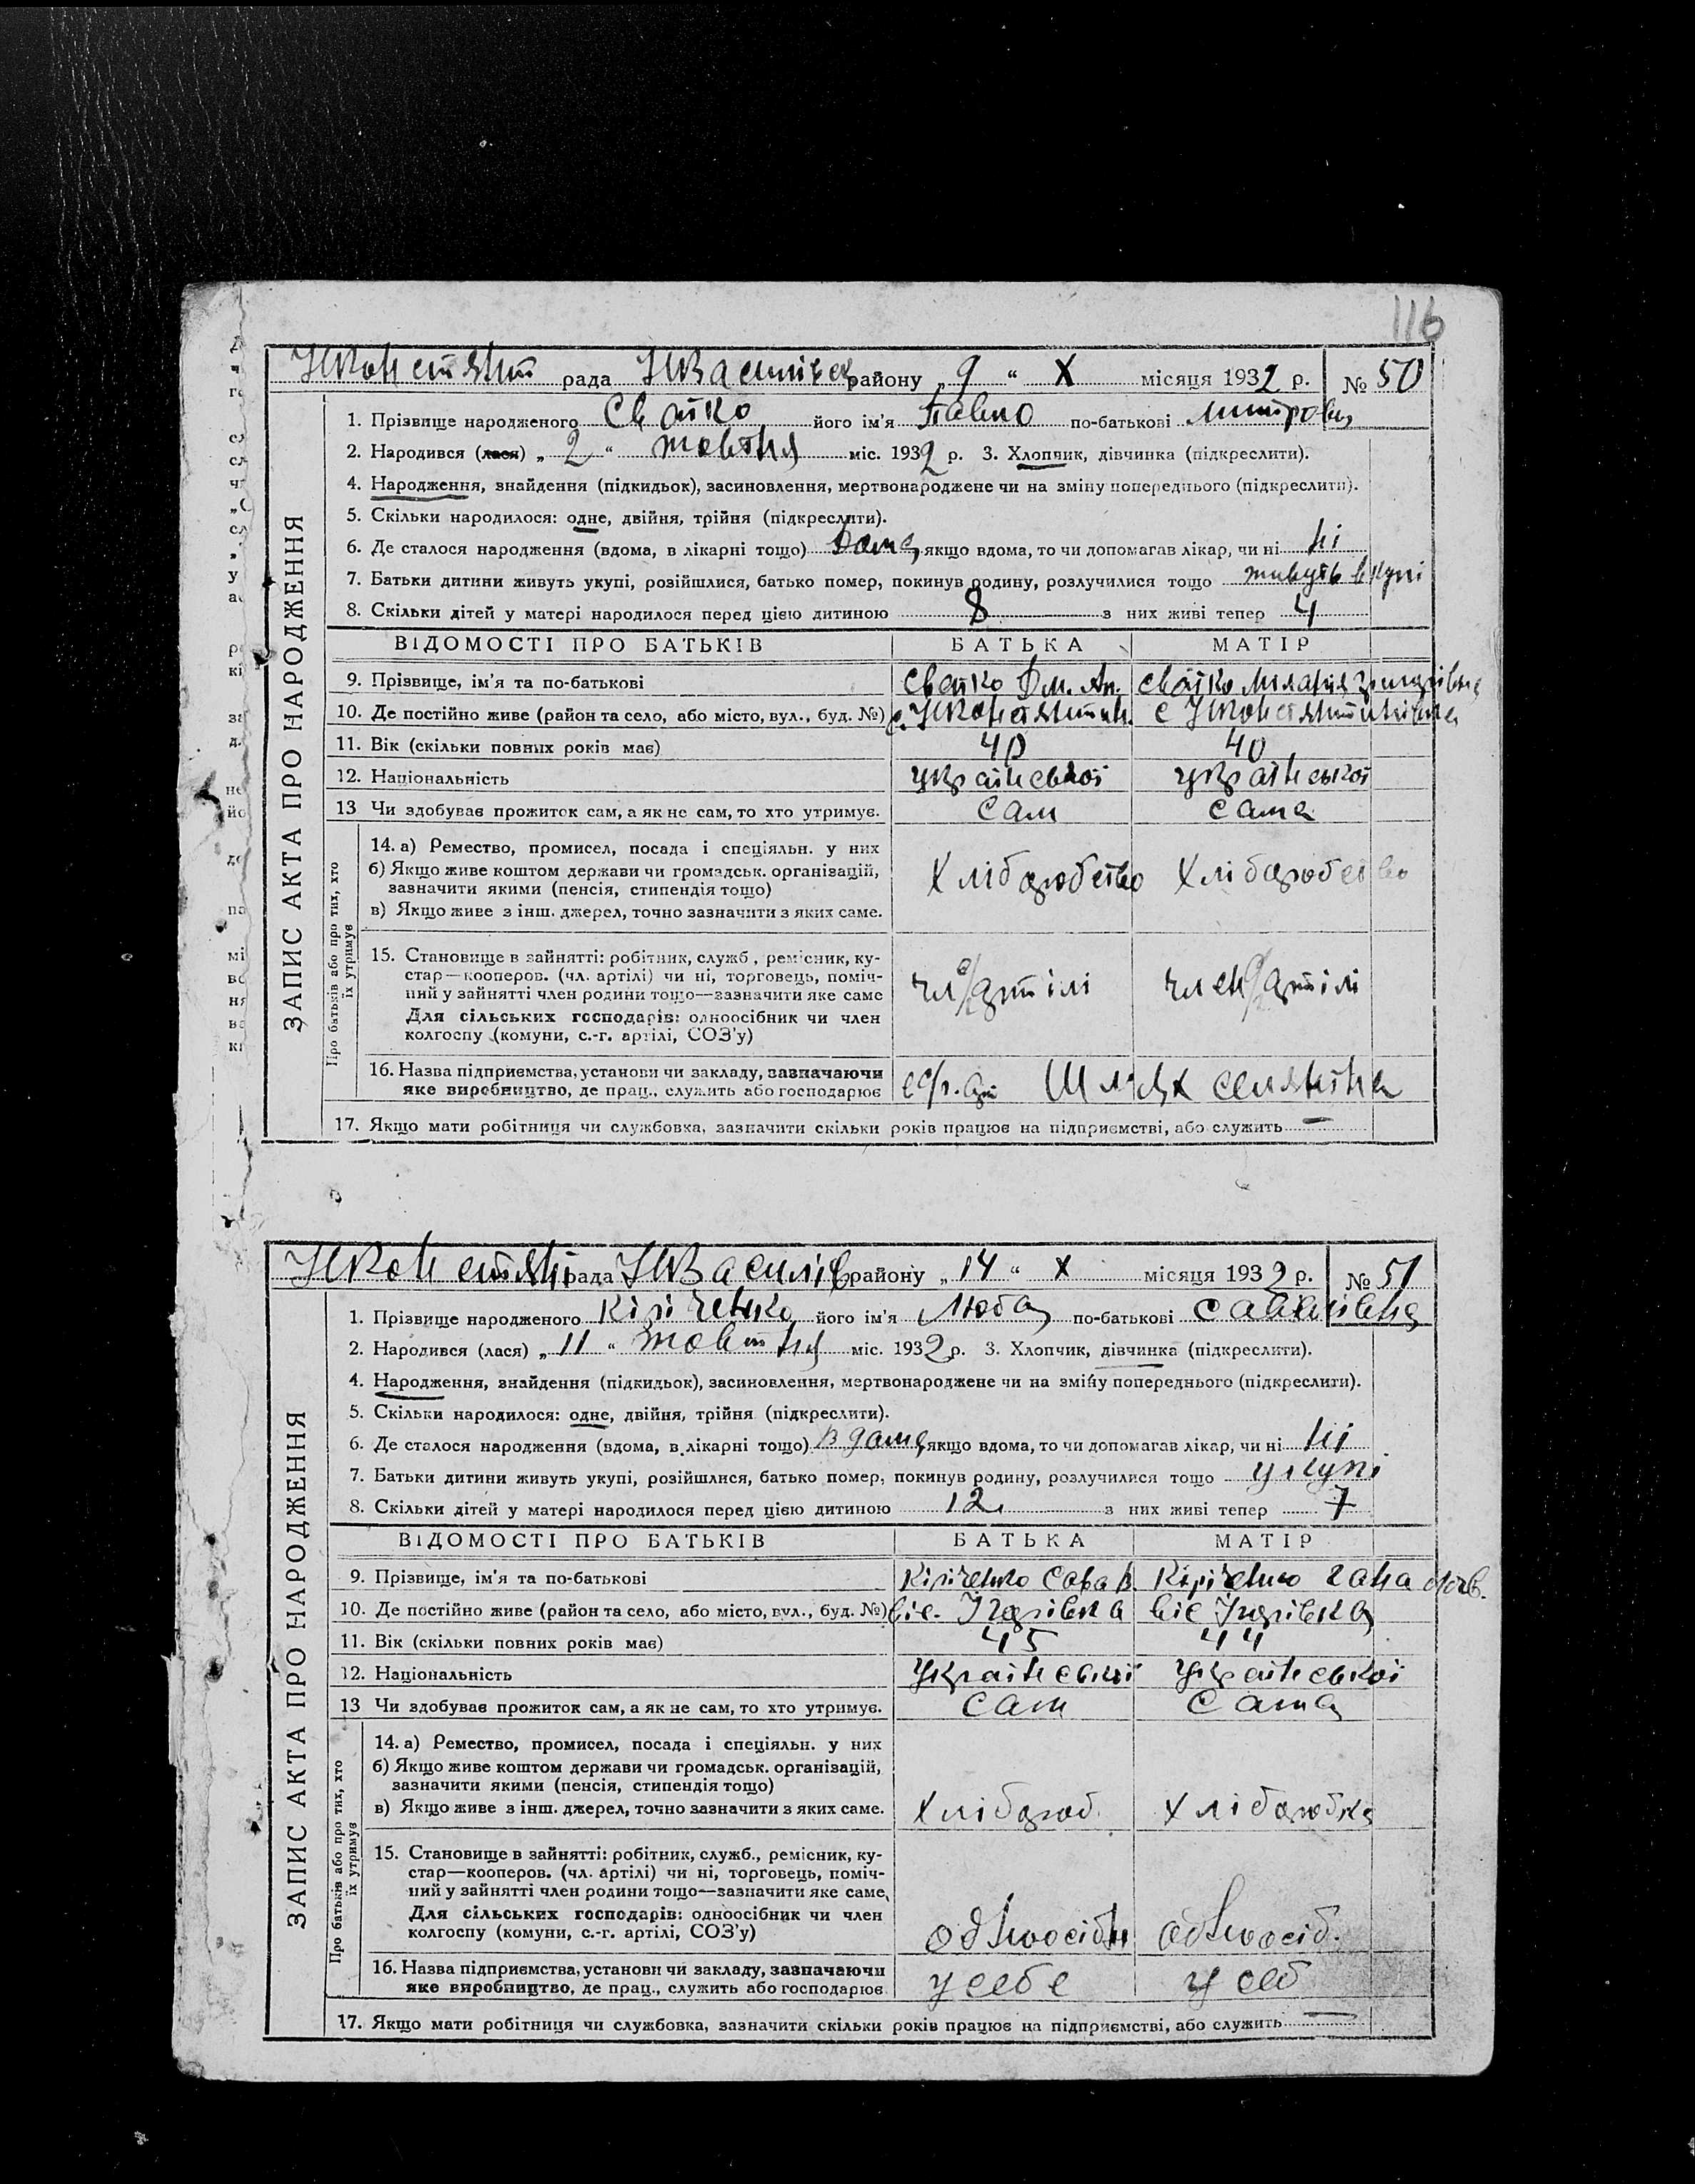 116
НКонстянт рада НВасилівск району „ 9 “ X місяця 1932 р. № 50
ЗАПИС АКТА ПРО НАРОДЖЕННЯ
1. Прізвище народженого Сватко його ім'я Павло по-батькові Митрович
2. Народився (лася) „ 2 “ жовтня міс. 1932 р. 3. Хлопчик, дівчинка (підкреслити).
4. Народження, знайдення (підкидьок), засиновлення, мертвонароджене чи на зміну попереднього (підкреслити).
5. Скільки народилося: одне, двійня, трійня (підкреслити).
6. Де сталося народження (вдома, в лікарні тощо) вдома, якщо вдома, то чи допомагав лікар, чи ні ні
7. Батьки дитини живуть укупі, розійшлися, батько помер, покинув родину, розлучилися тощо живуть вкупі
8. Скільки дітей у матері народилося перед цією дитиною 8 з них живі тепер 4
ВІДОМОСТІ ПРО БАТЬКІВ БАТЬКА МАТІР
9. Прізвище, ім'я та по-батькові Сватко Дм. Ан. Сватко Миларія Григорівна
10. Де постійно живе (район та село, або місто, вул., буд. №) с. НКонстянтин. с НКонстянтинівка
11. Вік (скільки повних років має) 40 40
12. Національність української української
13 Чи здобував прожиток сам, а як не сам, то хто утримує. сам сама
Про батьків або про тих, хто їх утримує
14. а) Ремество, промисел, посада і спеціяльн. у них
б) Якщо живе коштом держави чи громадськ. організацій,
зазначити якими (пенсія, стипендія тощо) Хліборобство Хліборобство
в) Якщо живе з інш. джерел, точно зазначити з яких саме.
15. Становище в зайнятті: робітник, служб, ремісник, ку-
стар—кооперов. (чл. артілі) чи ні, торговець, поміч-
ний у зайнятті член родини тощо—зазначити яке саме чл с/г артілі член с/г артілі
Для сільських господарів: одноосібник чи член
колгоспу (комуни, с.-г. артілі, СОЗ'у)
16. Назва підприємства, установи чи закладу, зазначаючи
яке виробництво, де прац., служить або господарює с/г. ар Шлях селянина
17. Якщо мати робітниця чи службовка, зазначити скільки років працює на підприємстві, або служить —
НКонстянт рада НВасилів району „ 14 “ X місяця 1932 р. № 51
ЗАПИС АКТА ПРО НАРОДЖЕННЯ
1. Прізвище народженого Кіріченко його ім'я Люба по-батькові Савелівна
2. Народився (лася) „ 11 “ жовтня міс. 1932 р. 3. Хлопчик, дівчинка (підкреслити).
4. Народження, знайдення (підкидьок), засиновлення, мертвонароджене чи на зміну попереднього (підкреслити).
5. Скільки народилося: одне, двійня, трійня (підкреслити).
6. Де сталося народження (вдома, в лікарні тощо) вдома, якщо вдома, то чи допомагав лікар, чи ні ні
7. Батьки дитини живуть укупі, розійшлися, батько помер, покинув родину, розлучилися тощо укупі
8. Скільки дітей у матері народилося перед цією дитиною 12 з них живі тепер 7
ВІДОМОСТІ ПРО БАТЬКІВ БАТЬКА МАТІР
9. Прізвище, ім'я та по-батькові Кіріченко Сава В. Кіріченко Гана
10. Де постійно живе (район та село, або місто, вул., буд. №)
11. Вік (скільки повних років має) 45 44
12. Національність української української
13 Чи здобував прожиток сам, а як не сам, то хто утримує. сам сама
Про батьків або про тих, хто їх утримує
14. а) Ремество, промисел, посада і спеціяльн. у них
б) Якщо живе коштом держави чи громадськ. організацій,
зазначити якими (пенсія, стипендія тощо)
в) Якщо живе з інш. джерел, точно зазначити з яких саме. хлібороб. хліборобка
15. Становище в зайнятті: робітник, служб., ремісник, ку-
стар—кооперов. (чл. артілі) чи ні, торговець, поміч-
ний у зайнятті член родини тощо—зазначити яке саме,
Для сільських господарів: одноосібник чи член
колгоспу (комуни, с.-г. артілі, СОЗ'у) одноосібн одноосіб.
16. Назва підприємства, установи чи закладу, зазначаючи
яке виробництво, де прац., служить або господарює у себе у себ
17. Якщо мати робітниця чи службовка, зазначити скільки років працює на підприємстві, або служить —